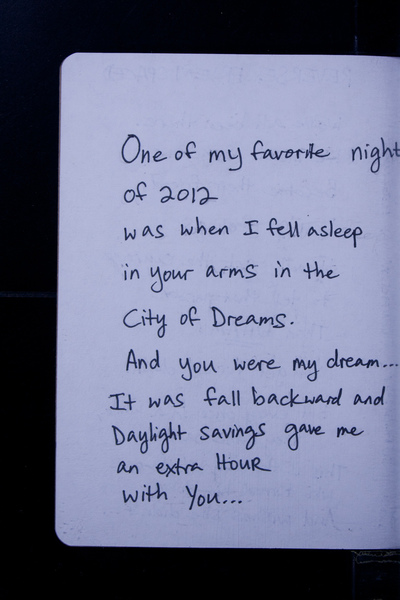 One of my favorite night
of 2012
was when I fell asleep
in your arms in the
City of Dreams.
And you were my dream...
It was fall backward and
Daylight savings gave me
an extra HOUR
with You...